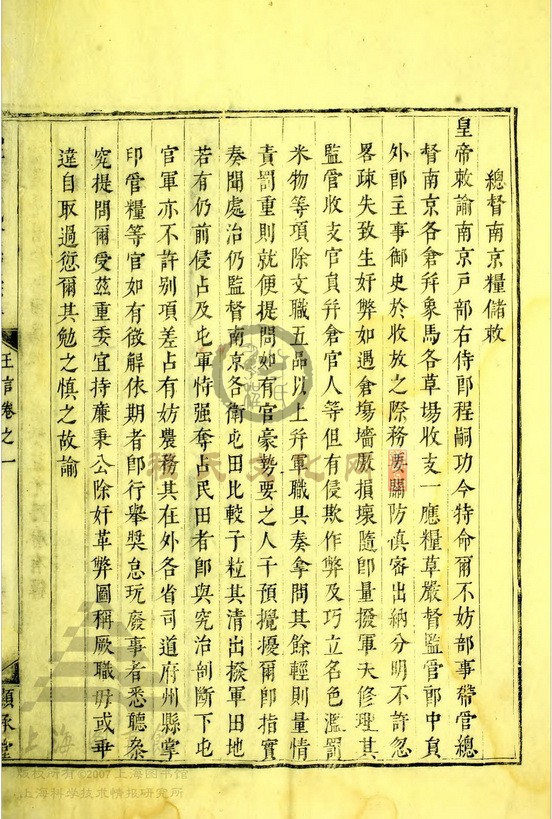 總督南京糧儲敕
皇帝敕諭南京戸部右侍郎程嗣功今特命爾不妨部事帶管總
督南京各倉并象馬各草場收支一應糧草嚴督監管郎中員
外郎主事御史於收放之際務要關防慎審出納分明不許忽
畧疎失致生奸弊如遇倉場墻厫損壞隨即量撥軍夫修理其
監管收支官員并倉官人等但有侵欺作弊及巧立名色濫罰
米物等項除文職五品以上并軍職具奏拿問其餘輕則量情
責罰重則就便提問如有官豪勢要之人干預攪擾爾即指實
奏聞處治仍監督南京各衛屯田比較子粒其清出撥軍田地
若有仍前侵占及屯軍恃强奪占民田者即與究治剖斷下屯
官軍亦不許别項差占有妨農務其在外各省司道府州縣掌
印管糧等官如有徵解依期者即行舉獎怠玩廢事者悉聽叅
究提問爾受茲重委宜持廉秉公除奸革弊圖稱厥職毋或乖
違自取過愆爾其勉之慎之故諭
王言卷之一
順承堂
程氏文化网
上海
版权所有©2007上海图书馆
上海科学技术情报研究所